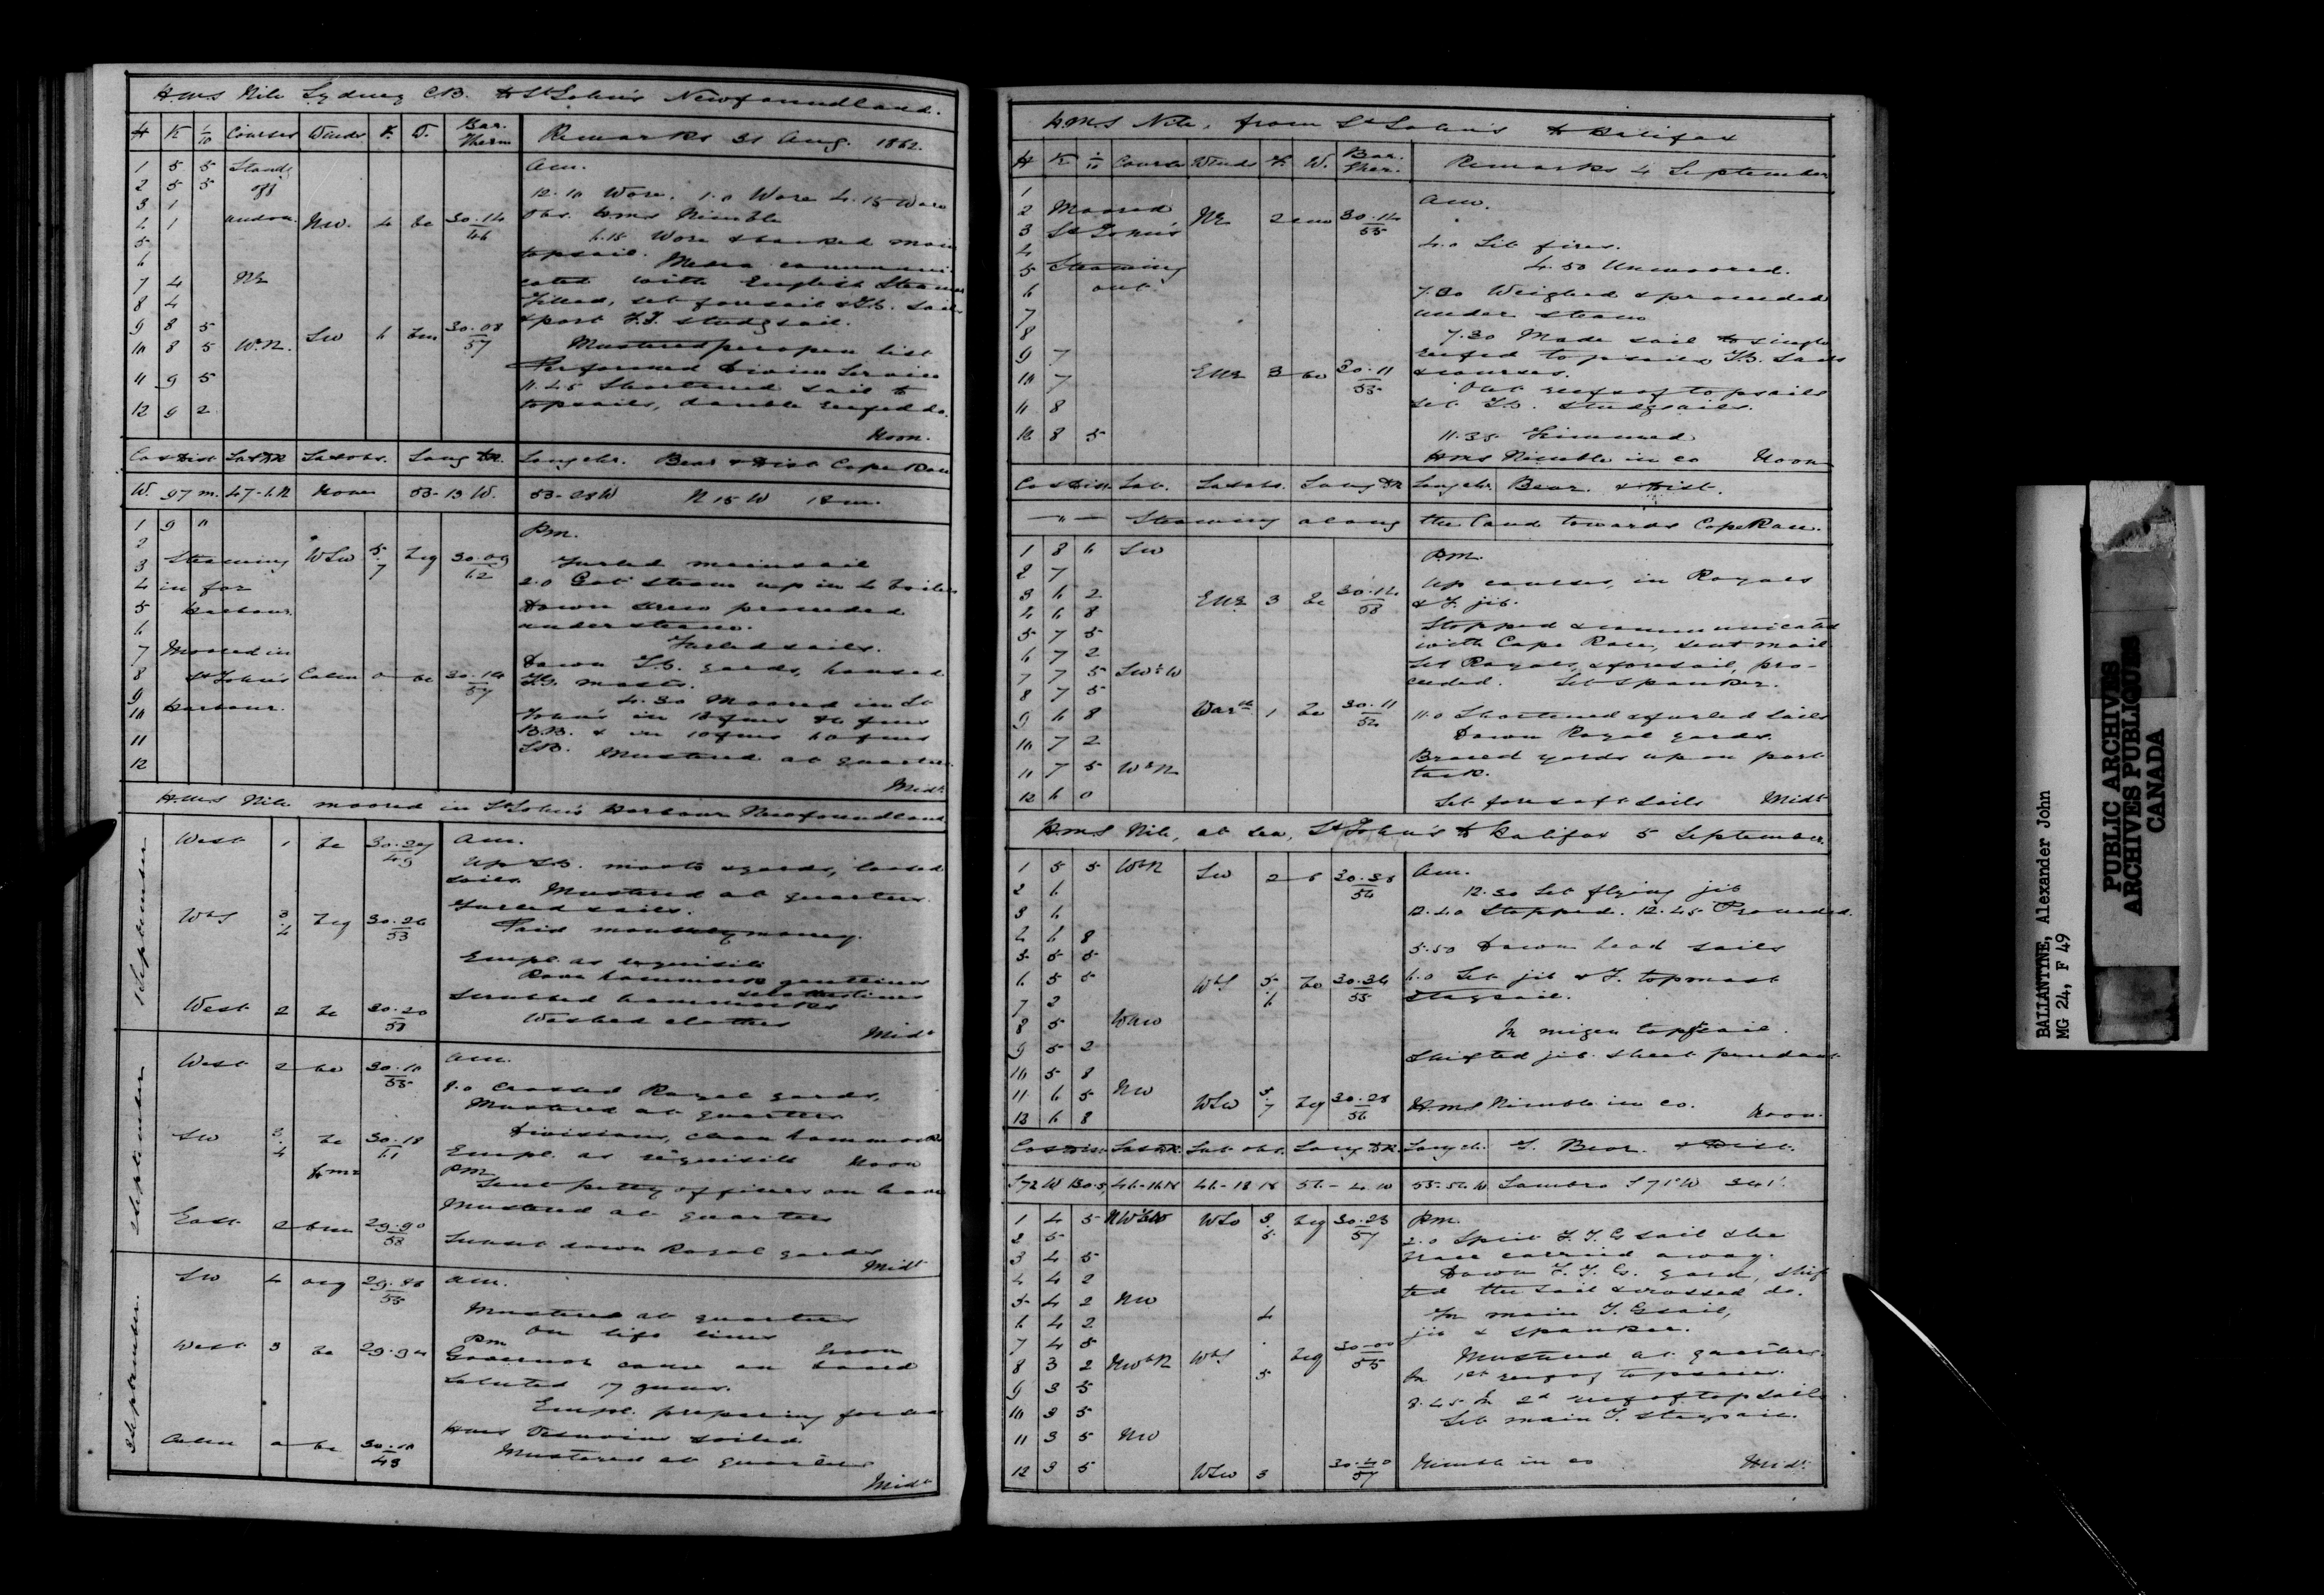 H.M.S Nile Sydney C.B. to St John's Newfoundland.
H K 1/10 Courses Winds F. W. Bar. Therm Remarks 31 Aug. 1862.
1 5 5 Standg Am.
2 5 5 off 12.10 Wore. 1.0 Wore 4.15 Wore
3 1 Obs. HMS Nimble
4 1 and on. NW. 4 bc 30.14/46
5 6.15 Wore & backed main
6 topsail. communi-
7 4 NE cated with English Steamer
8 4 Filled, set foresail & T.G. sails
9 8 5 SW 6 bm 30.08/57 & port F.T. studgsail.
10 8 5 W.N. Mustered per open list
11 9 5 Performed Divine Service
11.45 Shortened sail to
12 9 2 topsails, double reefed do.
Noon.
Co & Dist Lat DR Lat obs. Long DR. Long chr. Bear & Dist Cape Race
W. 97 m. 47-6 N None 53-13 W. 53-28 W N 15 W 18 m.
1 9 " Pm.
2 Steaming WSW 5.7 bcq 30.09/62 Furled mainsail
3 in for 2.0 Got steam up in 4 boilers
4 Harbour Down screw proceeded
5 under steam.
6 Furled sails.
7 Moored in Down T.G. yards, housed
8 St John's Calm 0 bc 30.14/57 T.G. masts.
9 Harbour. 4.30 Moored in St
10 John's in
11 B.B. & in 10 fms 60 fms
12 S.B. Mustered at quarters
Midt
H.M.S Nile moored in St John's Harbour Newfoundland
1 September
West 1 bc 30.27/49 Am.
Up T.G. masts & yards, loosed
sails. Mustered at quarters.
WbS 3.4 bcq 30.26/53 Furled sails.
Paid monthly money.
Empl. as requisite
Rove hammock gantlines
Scrubbed hammocks
West 2 bc 30.20/58 Washed clothes
Midt
2 September
West 2 bc 30.10/55 Am.
8.0 Crossed Royal yards.
Mustered at quarters
Divisions, clean hammocks
SW 3.4 bc 30.18/61 Empl. as requisite Noon
Pm
Sent petty officers on leave
Mustered at quarters
East 2 bm 29.90/58
Sunset down Royal yards
Midt
3 September.
SW 4 ocq 29.86/55 Am.
Mustered at quarters
On life lines Noon
West 3 bc 29.94 Pm
Governor came on board
Saluted 17 guns.
Empl. preparing for sea
HMS Vesuvius sailed
Calm 0 bc 30.10/43 Mustered at quarters
Midt
H.M.S Nile, from St John's to Halifax
H K 1/10 Course Winds F. W. Bar. Ther. Remarks 4 September
1 Am.
2 Moored NE 2 30.14/55
3 St John's 4.0 Lit fires.
4 4.50 Unmoored.
5 Steaming
6 out 7.30 Weighed & proceeded
7 under steam
8 7.30 Made sail to single
9 7 reefed topsails T.G. sails
10 7 ENE 3 bc 30.11/53 & courses.
Out reefs of topsails
11 8 Set T.G. studgsails.
12 8 5 11.35 Trimmed
HMS Nimble in co Noon
Co & Dist. Lat. Lat obs. Long DR Long chr. Bear. & Dist.
— " — Steaming along the land towards Cape Race.
1 8 6 SW P.M.
2 7 Up courses, in Royals
3 6 2 ENE 3 bc 30.12/58 & F. jib.
4 6 8 Stopped & communicated
5 7 5 with Cape Race, sent mail
6 7 2 Set Royals, & foresail, pro-
7 7 5 SWbW ceeded. Set spanker.
8 7 5
9 6 8 Varble 1 bc 30.11/52 11.0 Shortened & furled sails
10 7 2 Down Royal yards.
11 7 5 WbN Braced yards up on port
tack.
12 6 0 Set fore & aft sails Midt
H.M.S Nile, at sea, St John's to Halifax 5 September.
1 5 5 WbN SW 2 30.38/54 Am.
2 6 12.30 Set flying jib
3 6 12.40 Stopped. 12.45 Proceeded.
4 6 8 5.50 Down head sails
5 5 5
6 5 5 WbS 5.6 bc 30.34/55 6.0 Set jib & F. topmast
7 2 staysail.
8 5 WNW In mizen topsail.
9 5 2 Shifted jib sheet pendant
10 5 8
11 6 5 NW WSW 5.7 bcq 30.28/56 H.M.S Nimble in co. Noon.
12 6 8
Co & Dis. Lat DR. Lat obs. Long DR. Long ch. T. Bear. & Dist.
S 72 W 130.5 46-16 N 46-18 N 56-4 W 55-56 W Sambro S 71° W 341'.
1 4 5 WSW bcq 30.23/57 P.M.
2 5 2.0 Split F.T.G sail & the
3 4 5 carried away.
4 4 2 Down F.T.G. yard, shif
5 4 2 NW ted the sail & crossed do.
6 4 2 4 In main T.G sail,
7 4 5 jib & spanker.
8 3 2 NWbN WbS 5 bcq 30.00/55 Mustered at quarters.
9 3 5 In 1st reef of topsails.
10 3 5 8.45 In 2d reef of topsails
Set main T. staysail.
11 3 5 NW
12 3 5 WSW 3 30.40/57 Nimble in co Midt
BALLANTYNE, Alexander John
MG 24, F 49
PUBLIC ARCHIVES
ARCHIVES PUBLIQUES
CANADA